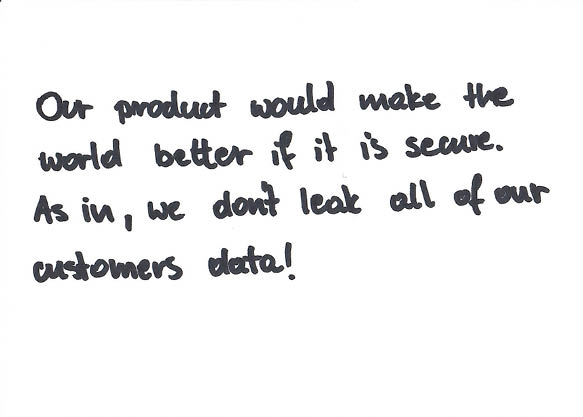 Our product would make the
world better if it is secure.
As in, we don't leak all of our
customers data!